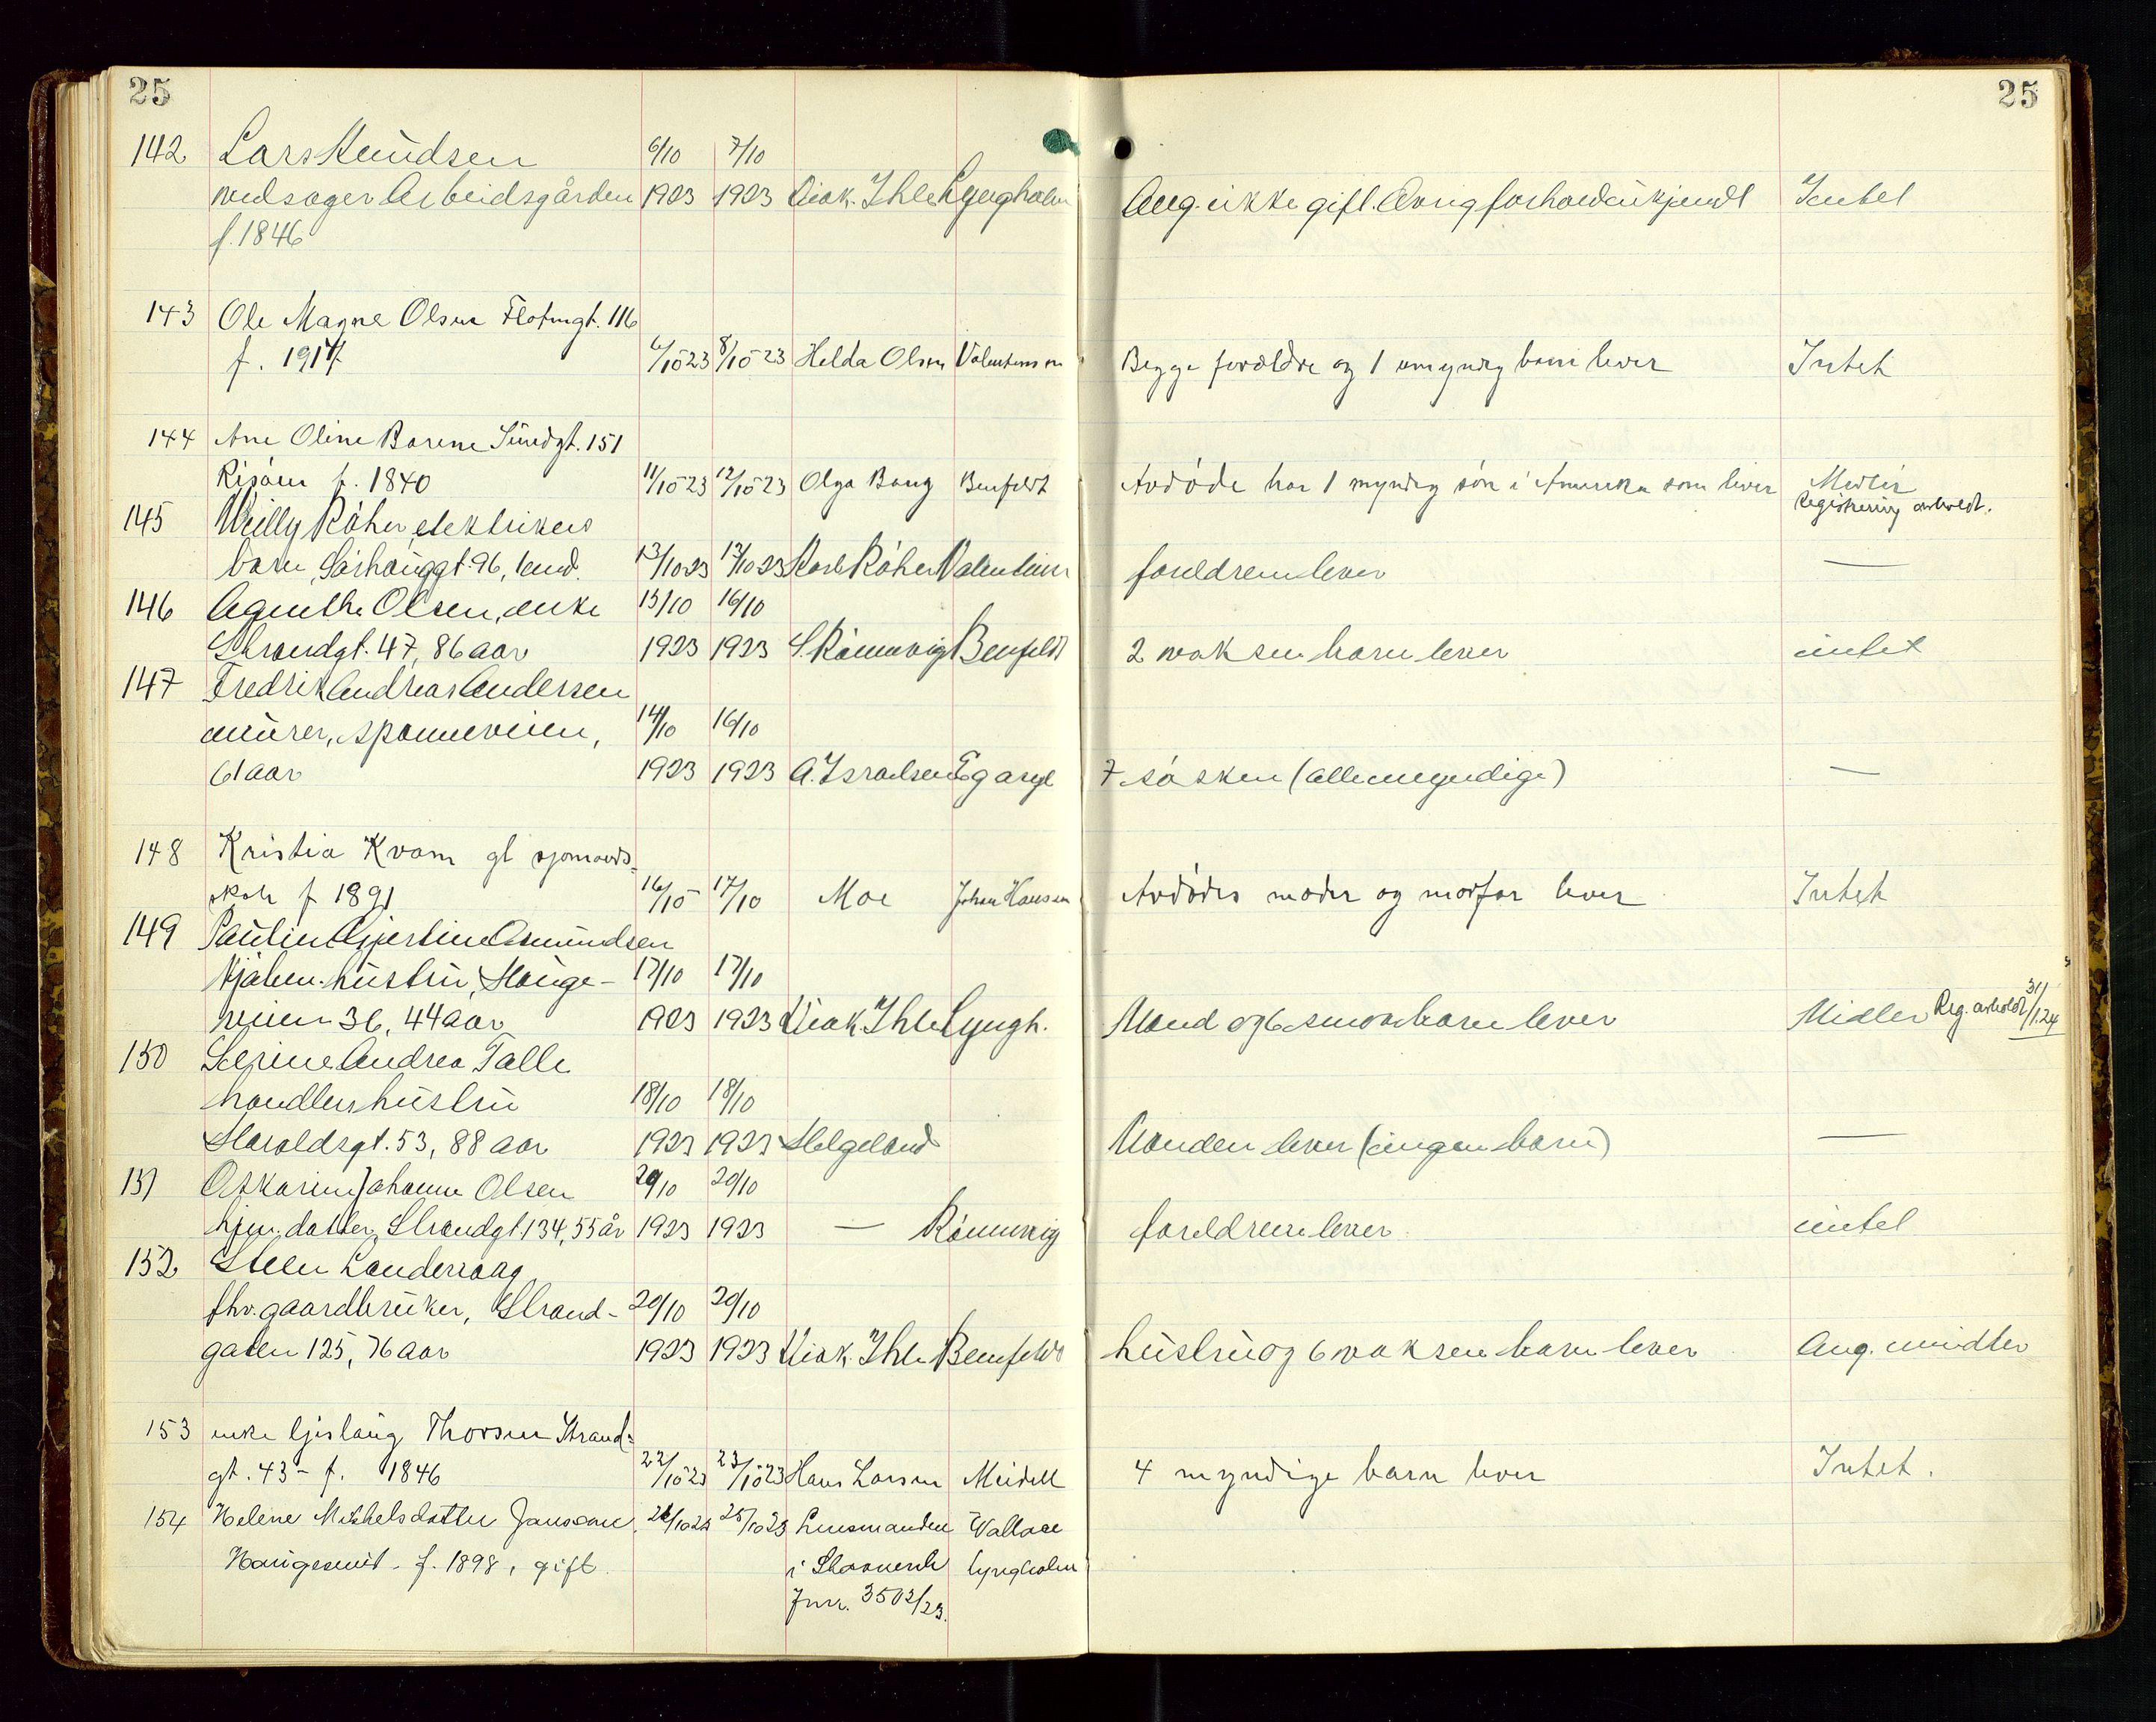 25
25
142 Lars Knudsen 6/10 7/10
vedsager Arbeidsgården 1923 1923 Diak. Ihle Lyngholm Ang. ikke gift. Øvrig forhold ukjendt Intet
f. 1846
143 Ole Magne Olsen Flotmgt. 116
f. 1917 6/10 23 8/10 23 Helda Olsen Valentinsen Begge forældre og 1 umyndig barn lever Intet
144 Ane Oline Borene Sundgt. 151
Risøen f. 1840 11/10 23 12/10 23 Olga Bang Benfeldt Avdøde har 1 myndig søn i Amerika som lever Midler
Registrering avholdt.
145 Willy Röher, elektrikers
barn, Sørhauggt. 96, 1 md. 13/10 23 13/10 23 Karl Röher Valentinsen foreldrene lever —
146 Agnethe Olsen, enke 15/10 16/10
Strandgt. 47, 86 aar 1923 1923 S. Rønnevig Benfeldt 2 voksne barn lever intet
147 Fredrik Andreas Andersen
murer, Spanneveien, 14/10 16/10
61 aar 1923 1923 A. Israelsen 7 søsken (alle myndige) —
148 Kristia Kvam gl sjomands-
skole f 1891 16/10 17/10 Moe Johan Hansen Avdødes moder og morfar lever Intet
149 Paulin Gjertine Asmundsen
sjøm. hustru, Hauge- 17/10 17/10
veien 36, 44 aar 1923 1923 Diak. Ihle Lyngh. Mand og 6 smaa barn lever Midler Reg. avholdt 31/1.24
150 Serine Andrea Talle
handlers hustru 18/10 18/10
Haraldsgt. 53, 88 aar 1923 1923 Helgeland Manden lever (ingen barn) —
151 Oskarine Johanne Olsen 20/10 20/10
hjm. datter, Strandgt 134, 55 år 1923 1923 — Rønnevig foreldrene lever intet
152 Steen Landerraag
fhv. gaardbruker, Strand- 20/10 20/10
gaten 125, 76 aar 1923 1923 Diak. Ihle Benfeldt hustru og 6 voksne barn lever Ang. midler
153 enke Gislaug Thorsen Strand-
gt. 43 - f. 1846 22/10 23 23/10 23 Hans Larsen Meidell 4 myndige barn lever Intet.
154 Helene Mikkelsdatter Janssen, 24/10 23 25/10 23 Lensmanden Wallace
Haugesund. f. 1898, gift. i Skaanevik Lyngholm
Jnr. 3503/23.